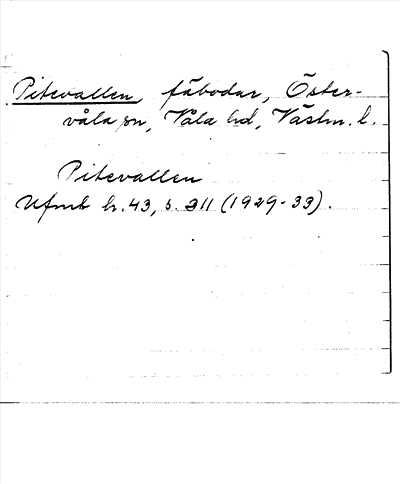 Pitevallen, fäbodar, Öster-
våla sn, Våla hd, Västm. l.
Pitevallen
Ufmt h. 43, s. 211 (1929-33).